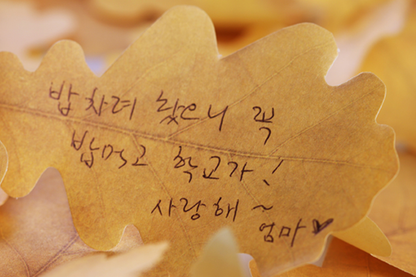 밥 차려 놨으니 꼭
밥먹고 학교가!
사랑해 ~
엄마♥